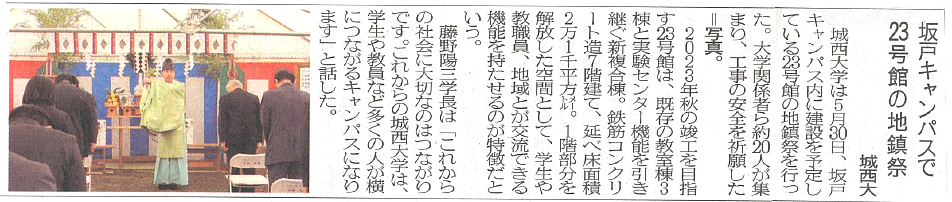 坂戸キャンパスで
23号館の地鎮祭
城西大
城西大学は5月30日、坂戸
キャンパス内に建設を予定し
ている23号館の地鎮祭を行っ
た。大学関係者ら約20人が集
まり、工事の安全を祈願した
＝写真。
2023年秋の竣工を目指
す23号館は、既存の教室棟3
棟と実験センター機能を引き
継ぐ新複合棟。鉄筋コンクリ
ート造7階建て、延べ床面積
2万1千平方㍍。1階部分を
解放した空間として、学生や
教職員、地域とが交流できる
機能を持たせるのが特徴だと
いう。
藤野陽三学長は「これから
の社会に大切なのはつながり
です。これからの城西大学は、
学生や教員など多くの人が横
につながるキャンパスになり
ます」と話した。